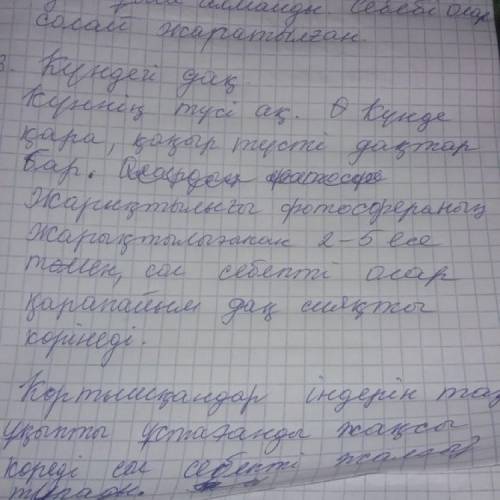 алмайды. Себебі олар
солай жаратылған.
3. Күндегі дақ.
Күннің түсі ақ. Күнде
қара, қоңыр түсті дақтар
бар.
Жарықтылығы фотосфераның
жарықтылығынан 2-5 есе
төмен, сол себепті олар
қарапайым дақ сияқты
көрінеді.
Көртышқандар індерін таз
ұқыпты ұстағанды жақсы
көреді сол себепті жалғыз
тұрады.